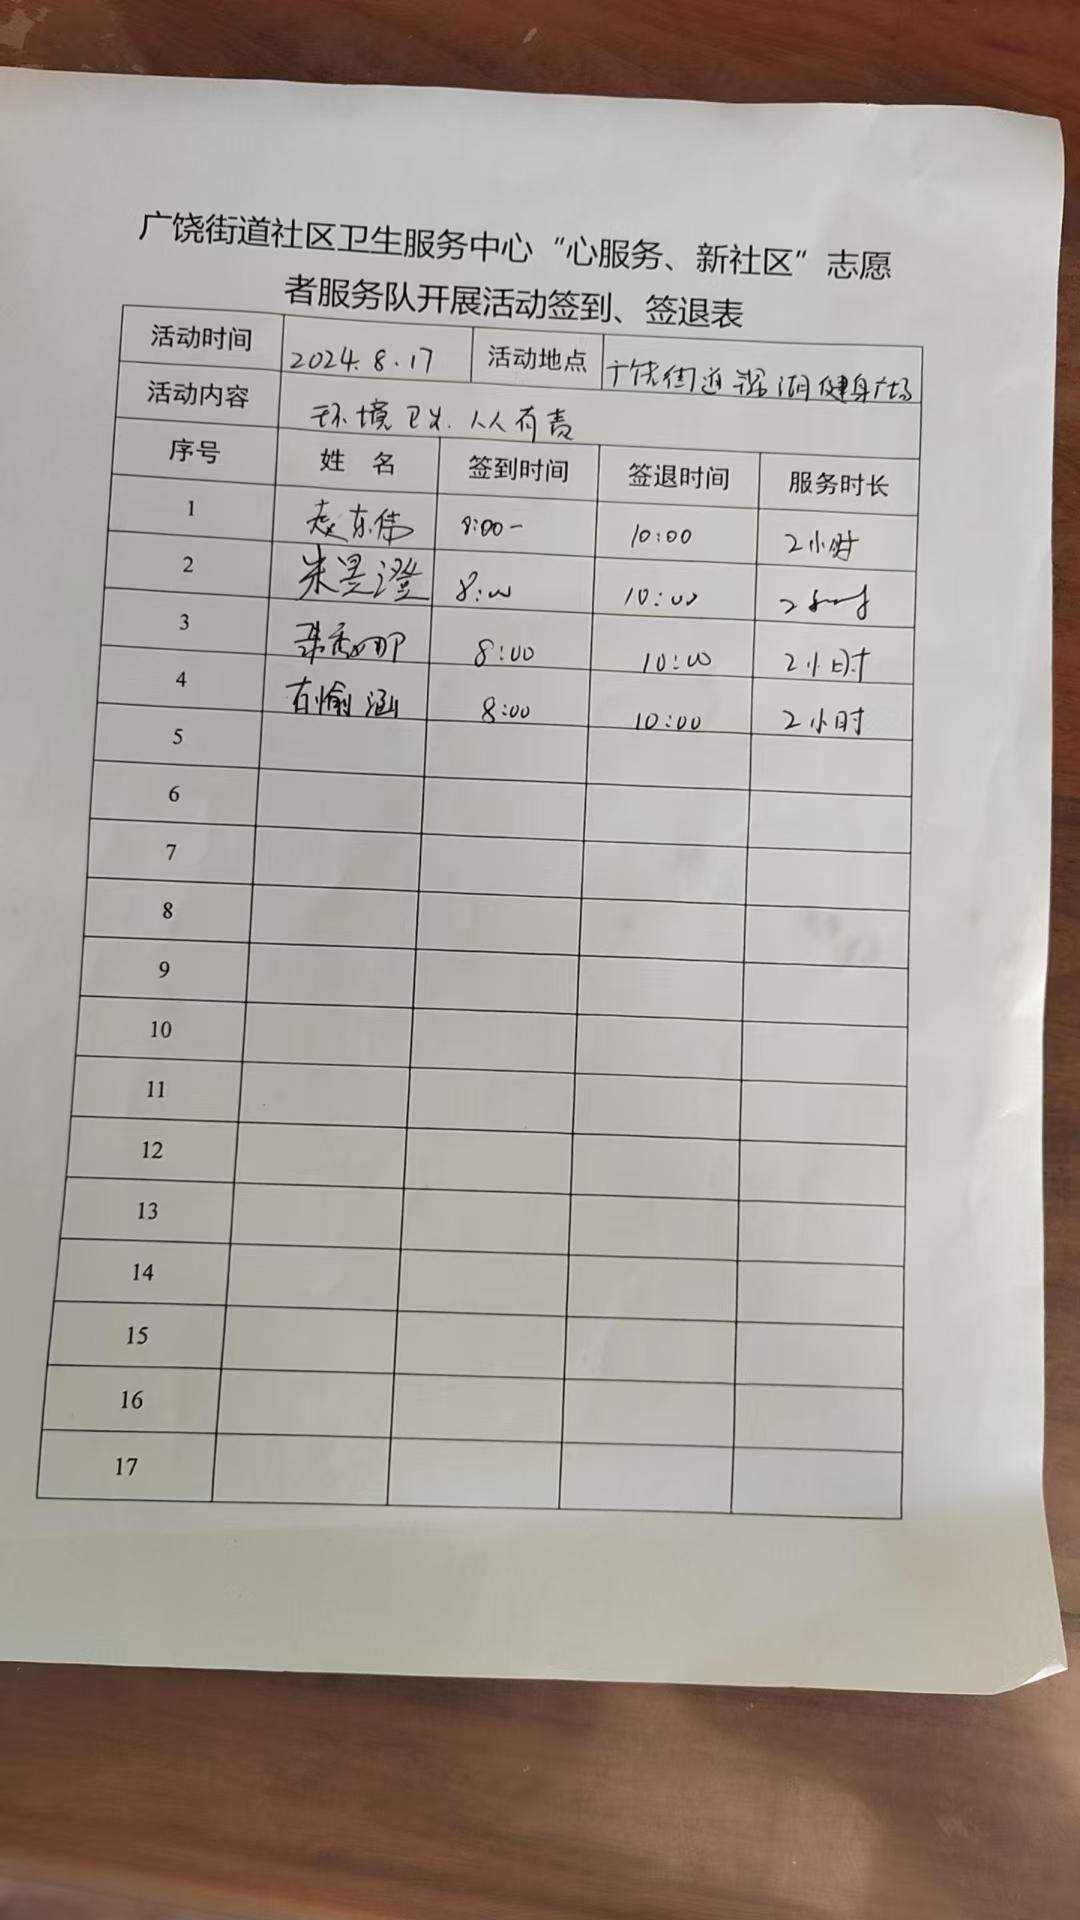 广饶街道社区卫生服务中心“心服务、新社区”志愿
者服务队开展活动签到、签退表
活动时间 2024.8.17 活动地点 广饶街道 湖健身广场
活动内容 环境卫生.人人有责
序号 姓 名 签到时间 签退时间 服务时长
1 赵东伟 8:00- 10:00 2小时
2 朱昱澄 8:00 10:00 2小时
3 8:00 10:00 2小时
4 愉涵 8:00 10:00 2小时
5
6
7
8
9
10
11
12
13
14
15
16
17